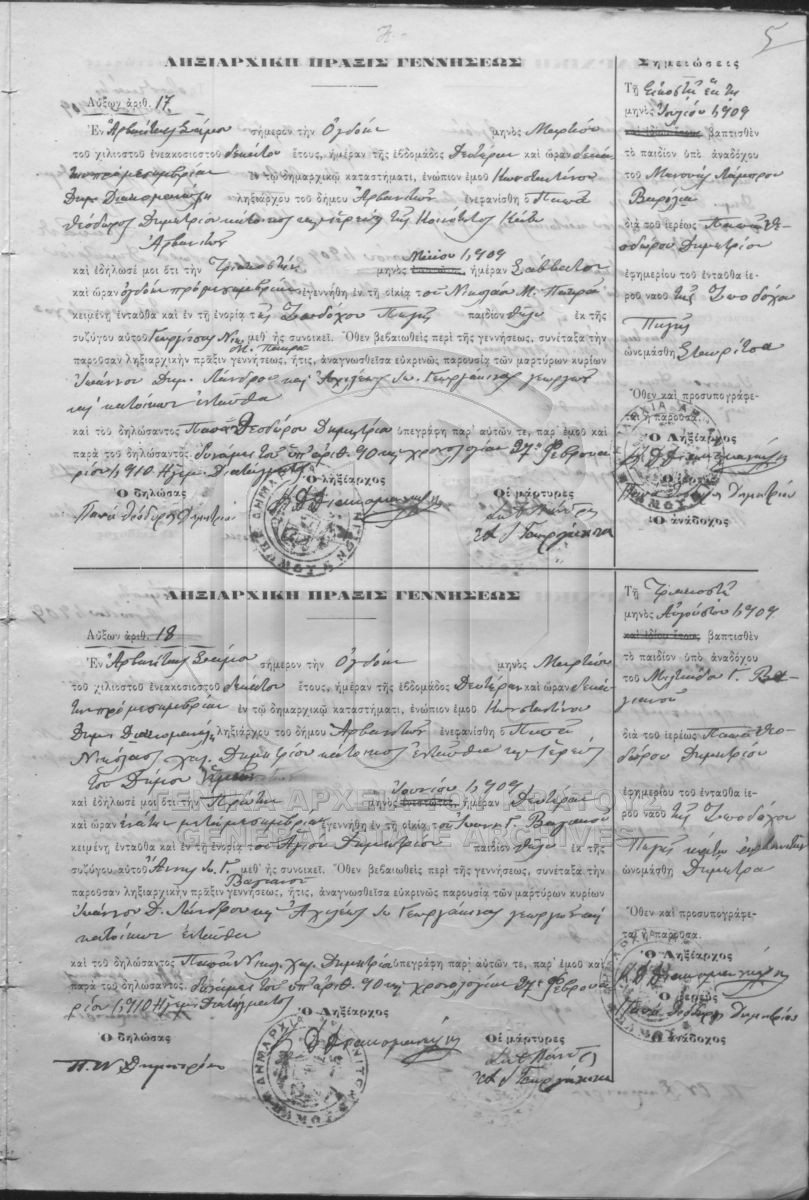 5
ΛΗΞΙΑΡΧΙΚΗ ΠΡΑΞΙΣ ΓΕΝΝΗΣΕΩΣ
Αὔξων ἀριθ. 17
Ἐν σήμερον τὴν Ὀγδόην μηνὸς Μαρτίου
τοῦ χιλιοστοῦ ἐνεακοσιοστοῦ δεκάτου ἔτους, ἡμέραν τῆς ἑβδομάδος Δευτέραν καὶ ὥραν
ἐν τῷ δημαρχικῷ καταστήματι, ἐνώπιον ἐμοῦ Κωνσταντίνου
ληξιάρχου τοῦ δήμου Ἀρβανιτῶν ἐνεφανίσθη ὁ Παπᾶ
Θεόδωρος Δημητρίου κάτοικος
Ἀρβανιτῶν
Μαΐου 1909
καὶ ἐδήλωσέ μοι ὅτι τὴν Τριακοστὴν μηνὸς ἡμέραν Σάββατον
καὶ ὥραν ὀγδόην πρὸ μεσημβρίας ἐγεννήθη ἐν τῇ οἰκίᾳ τοῦ Νικολάου Μ.
κειμένῃ ἐνταῦθα καὶ ἐν τῇ ἐνορίᾳ τῆς Ζωοδόχου Πηγῆς παιδίον θῆλυ ἐκ τῆς
συζύγου αὐτοῦ Νικ. μεθ' ἧς συνοικεῖ. Ὅθεν βεβαιωθεὶς περὶ τῆς γεννήσεως, συνέταξα τὴν
παροῦσαν ληξιαρχικὴν πρᾶξιν γεννήσεως, ἥτις, ἀναγνωσθεῖσα εὐκρινῶς παρουσίᾳ τῶν μαρτύρων κυρίων
Ἰωάννου Δημ. καὶ Ἀχιλλέως Ἰω. Γεωργακινα γεωργῶν
καὶ κατοίκων ἐνταῦθα
καὶ τοῦ δηλώσαντος Παπᾶ Θεοδώρου Δημητρίου ὑπεγράφη παρ' αὐτῶν τε, παρ' ἐμοῦ καὶ
παρὰ τοῦ δηλώσαντος δυνάμει τοῦ ὑπ' ἀριθ. 90 καὶ χρονολογίαν 27ης Φεβρουα
ρίου 1910 Ἡγεμ. Διατάγματος
Ὁ ληξίαρχος
Ὁ δηλώσας
Οἱ μάρτυρες
Παπᾶ Θεόδωρος Δημητρίου
Σημειώσεις
Τῇ Εἰκοστῇ ἕκτῃ
μηνὸς Ἰουλίου 1909
βαπτισθὲν
τὸ παιδίον ὑπὸ ἀναδόχου
τοῦ Λάμπρου
διὰ τοῦ ἱερέως Παπᾶ Θε-
οδώρου Δημητρίου
ἐφημερίου τοῦ ἐνταῦθα ἱε-
ροῦ ναοῦ τῆς Ζωοδόχου
Πηγῆς
ὠνομάσθη Σταυρίτσα
Ὅθεν καὶ προσυπογράφε-
ται ἡ παροῦσα.
Ὁ Ληξίαρχος
Ὁ ἱερεὺς
Παπᾶ Θεόδωρος Δημητρίου
Ὁ ἀνάδοχος
ΛΗΞΙΑΡΧΙΚΗ ΠΡΑΞΙΣ ΓΕΝΝΗΣΕΩΣ
Αὔξων ἀριθ. 18
Ἐν σήμερον τὴν Ὀγδόην μηνὸς Μαρτίου
τοῦ χιλιοστοῦ ἐνεακοσιοστοῦ δεκάτου ἔτους, ἡμέραν τῆς ἑβδομάδος Δευτέραν καὶ ὥραν
ἐν τῷ δημαρχικῷ καταστήματι, ἐνώπιον ἐμοῦ Κωνσταντίνου
ληξιάρχου τοῦ δήμου Ἀρβανιτῶν ἐνεφανίσθη ὁ Παπᾶ
Νικόλαος Χαζ. Δημητρίου κάτοικος ἐνταῦθα καὶ ἱερεὺς
τοῦ Δήμου
Ἰουνίου 1909
καὶ ἐδήλωσέ μοι ὅτι τὴν Πρώτην μηνὸς ἡμέραν Δευτέραν
καὶ ὥραν ἐνάτην μετὰ μεσημβρίαν ἐγεννήθη ἐν τῇ οἰκίᾳ τοῦ Ἰωάν. Γ. Βαγιανοῦ
κειμένῃ ἐνταῦθα καὶ ἐν τῇ ἐνορίᾳ τοῦ Ἁγίου Δημητρίου παιδίον θῆλυ ἐκ τῆς
συζύγου αὐτοῦ Ἄννης Ἰω. Γ. μεθ' ἧς συνοικεῖ. Ὅθεν βεβαιωθεὶς περὶ τῆς γεννήσεως, συνέταξα τὴν
Βαγιανοῦ
παροῦσαν ληξιαρχικὴν πρᾶξιν γεννήσεως, ἥτις, ἀναγνωσθεῖσα εὐκρινῶς παρουσίᾳ τῶν μαρτύρων κυρίων
Ἰωάννου Δ. καὶ Ἀχιλλέως Ἰω Γεωργακινα γεωργῶν καὶ
κατοίκων ἐνταῦθα
καὶ τοῦ δηλώσαντος Παπᾶ Νικολ. Χαζ. Δημητρίου ὑπεγράφη παρ' αὐτῶν τε, παρ' ἐμοῦ καὶ
παρὰ τοῦ δηλώσαντος δυνάμει τοῦ ὑπ' ἀριθ. 90 καὶ χρονολογίαν 27ης Φεβρουα
ρίου 1910 Ἡγεμ. Διατάγματος
Ὁ Ληξίαρχος
Ὁ δηλώσας
Οἱ μάρτυρες
Π. Ν Δημητρίου
Τῇ Τριακοστῇ
μηνὸς Αὐγούστου 1909
βαπτισθὲν
τὸ παιδίον ὑπὸ ἀναδόχου
τοῦ Μιλτιάδου Γ. Βα-
γιανοῦ
διὰ τοῦ ἱερέως Παπᾶ Θεο-
δώρου Δημητρίου
ἐφημερίου τοῦ ἐνταῦθα ἱε-
ροῦ ναοῦ τῆς Ζωοδόχου
Πηγῆς
ὠνομάσθη Δήμητρα
Ὅθεν καὶ προσυπογράφε-
ται ἡ παροῦσα.
Ὁ Ληξίαρχος
Ὁ ἱερεὺς
Παπᾶ Θεόδωρος Δημητρίου
Ὁ ἀνάδοχος
ΓΕΝΙΚΑ ΑΡΧΕΙΑ ΤΟΥ ΚΡΑΤΟΥΣ
GENERAL STATE ARCHIVES